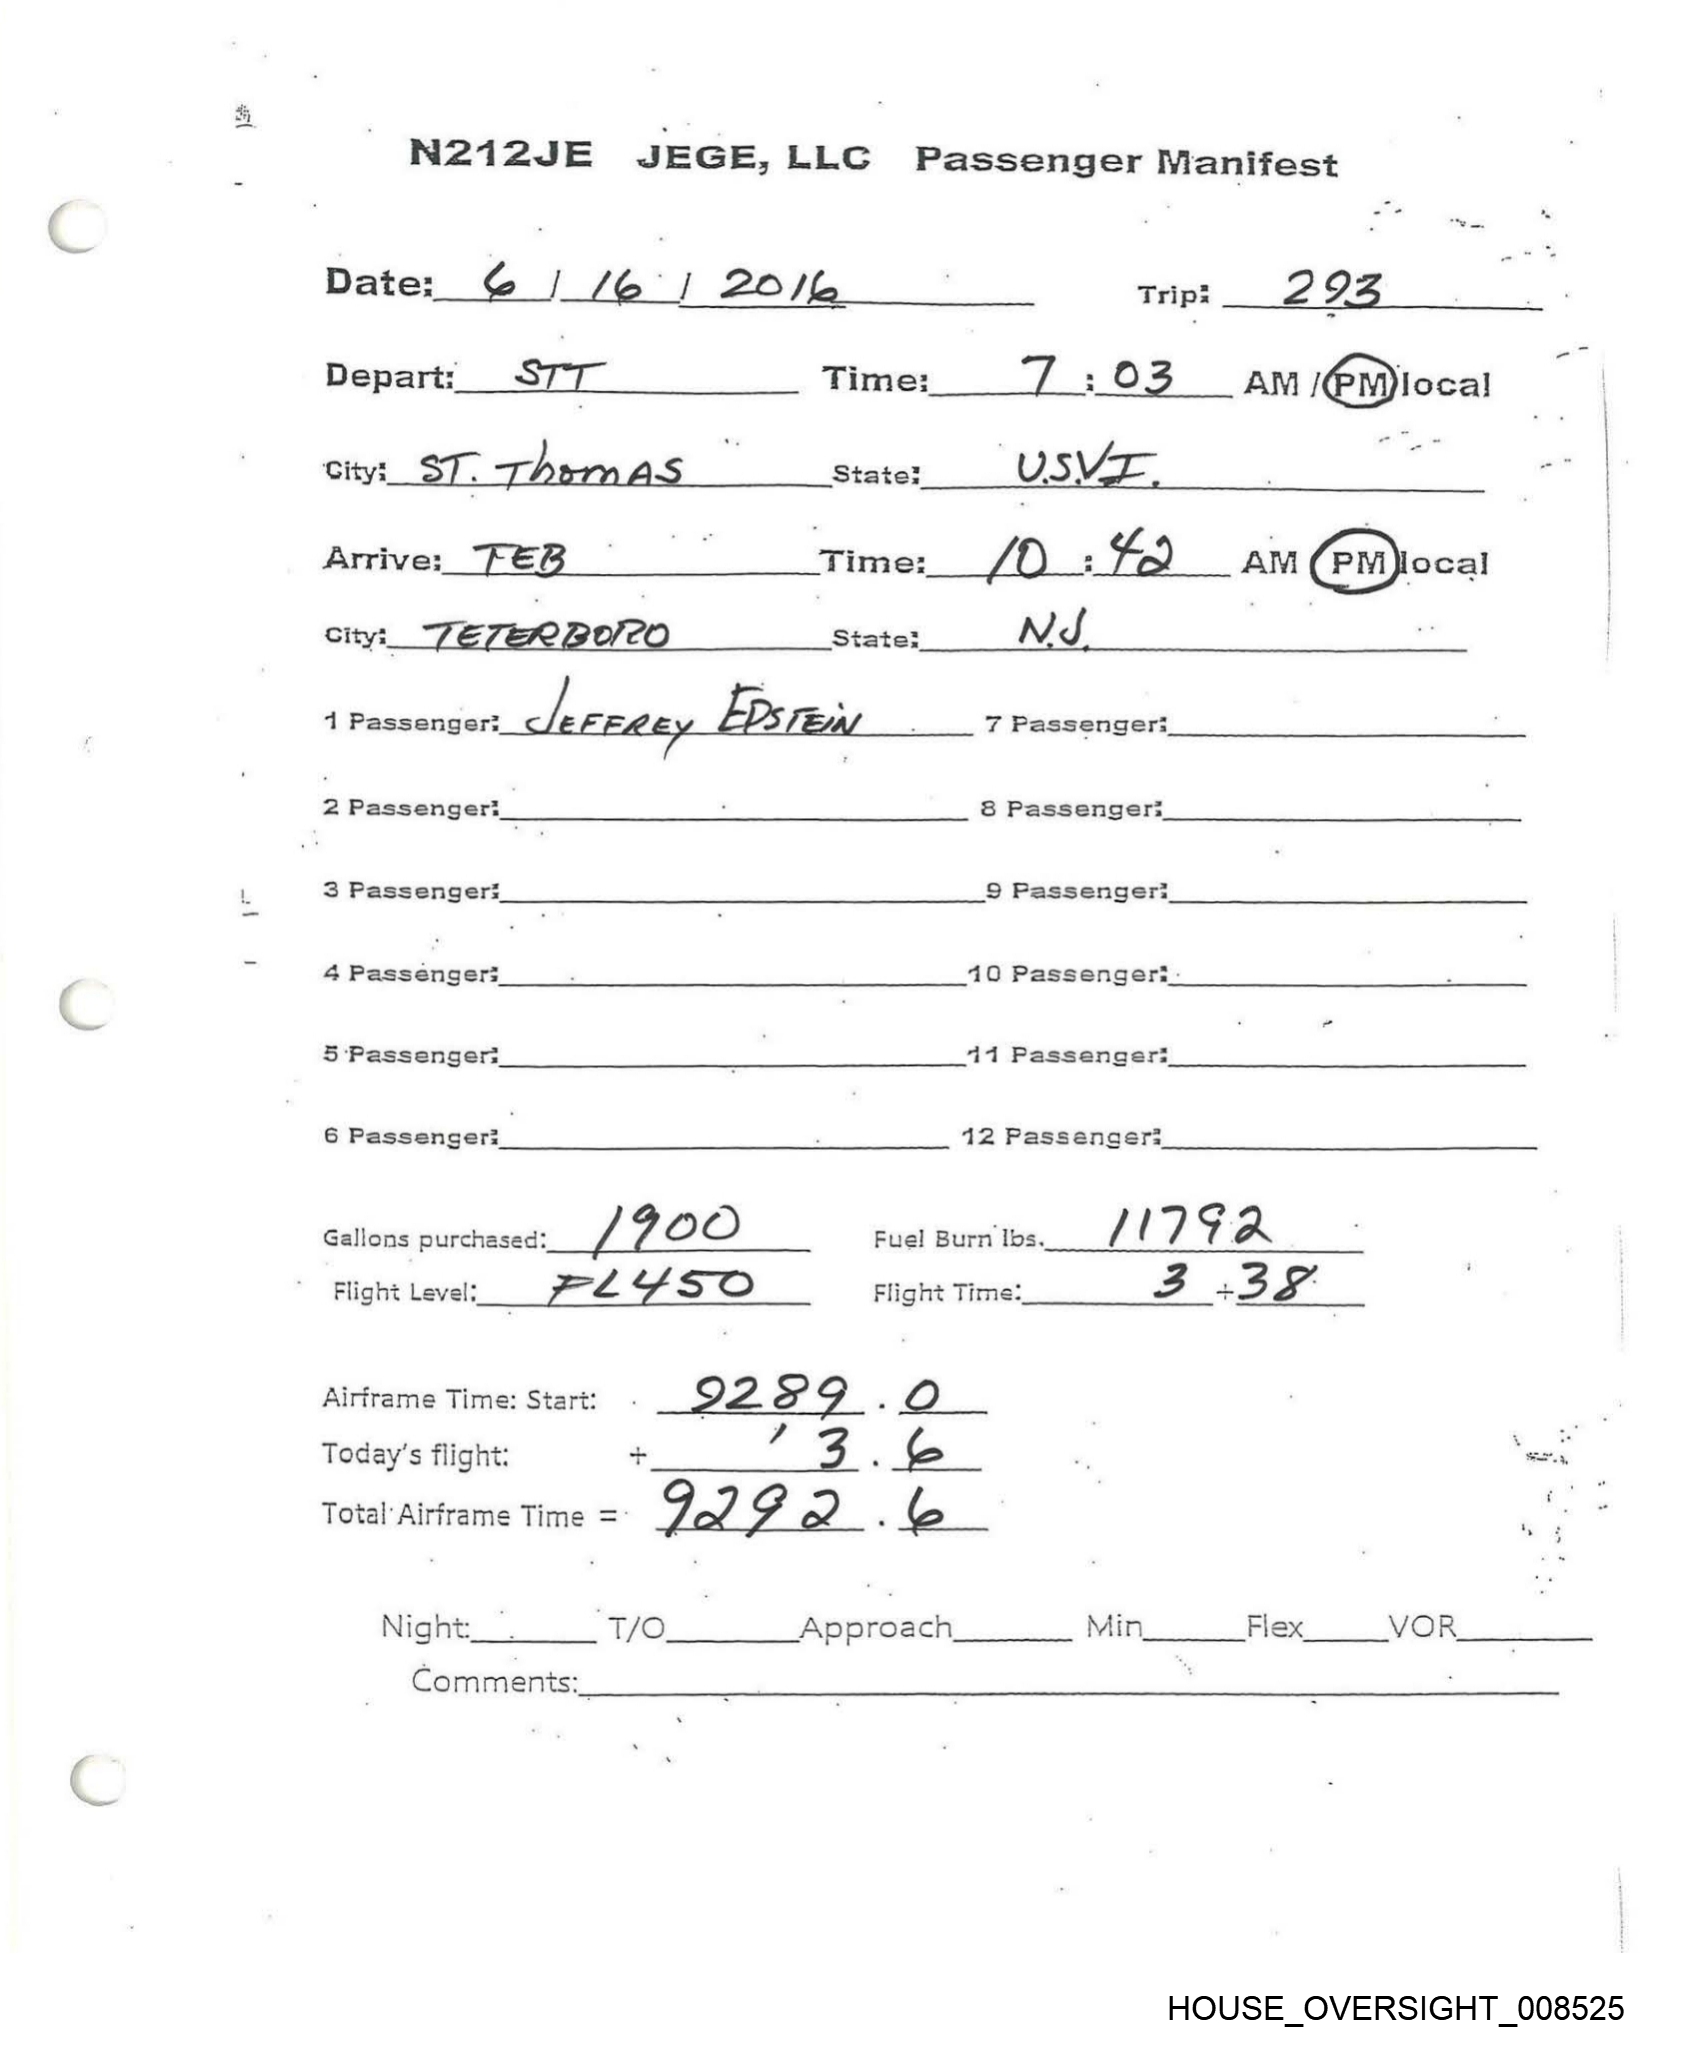 N212JE JEGE, LLC Passenger Manifest
Date: 6 / 16 / 2016 Trip: 293
Depart: STT Time: 7 : 03 AM / PM local
City: ST. ThomAS State: U.S.V.I.
Arrive: TEB Time: 10 : 42 AM PM local
City: TETERBORO State: N.J.
1 Passenger: JEFFREY EPSTEIN 7 Passenger:
2 Passenger: 8 Passenger:
3 Passenger: 9 Passenger:
4 Passenger: 10 Passenger:
5 Passenger: 11 Passenger:
6 Passenger: 12 Passenger:
Gallons purchased: 1900 Fuel Burn lbs. 11792
Flight Level: FL450 Flight Time: 3 + 38
Airframe Time: Start: 9289 . 0
Today's flight: + 3 . 6
Total Airframe Time = 9292 . 6
Night: T/O Approach Min Flex VOR
Comments:
HOUSE_OVERSIGHT_008525